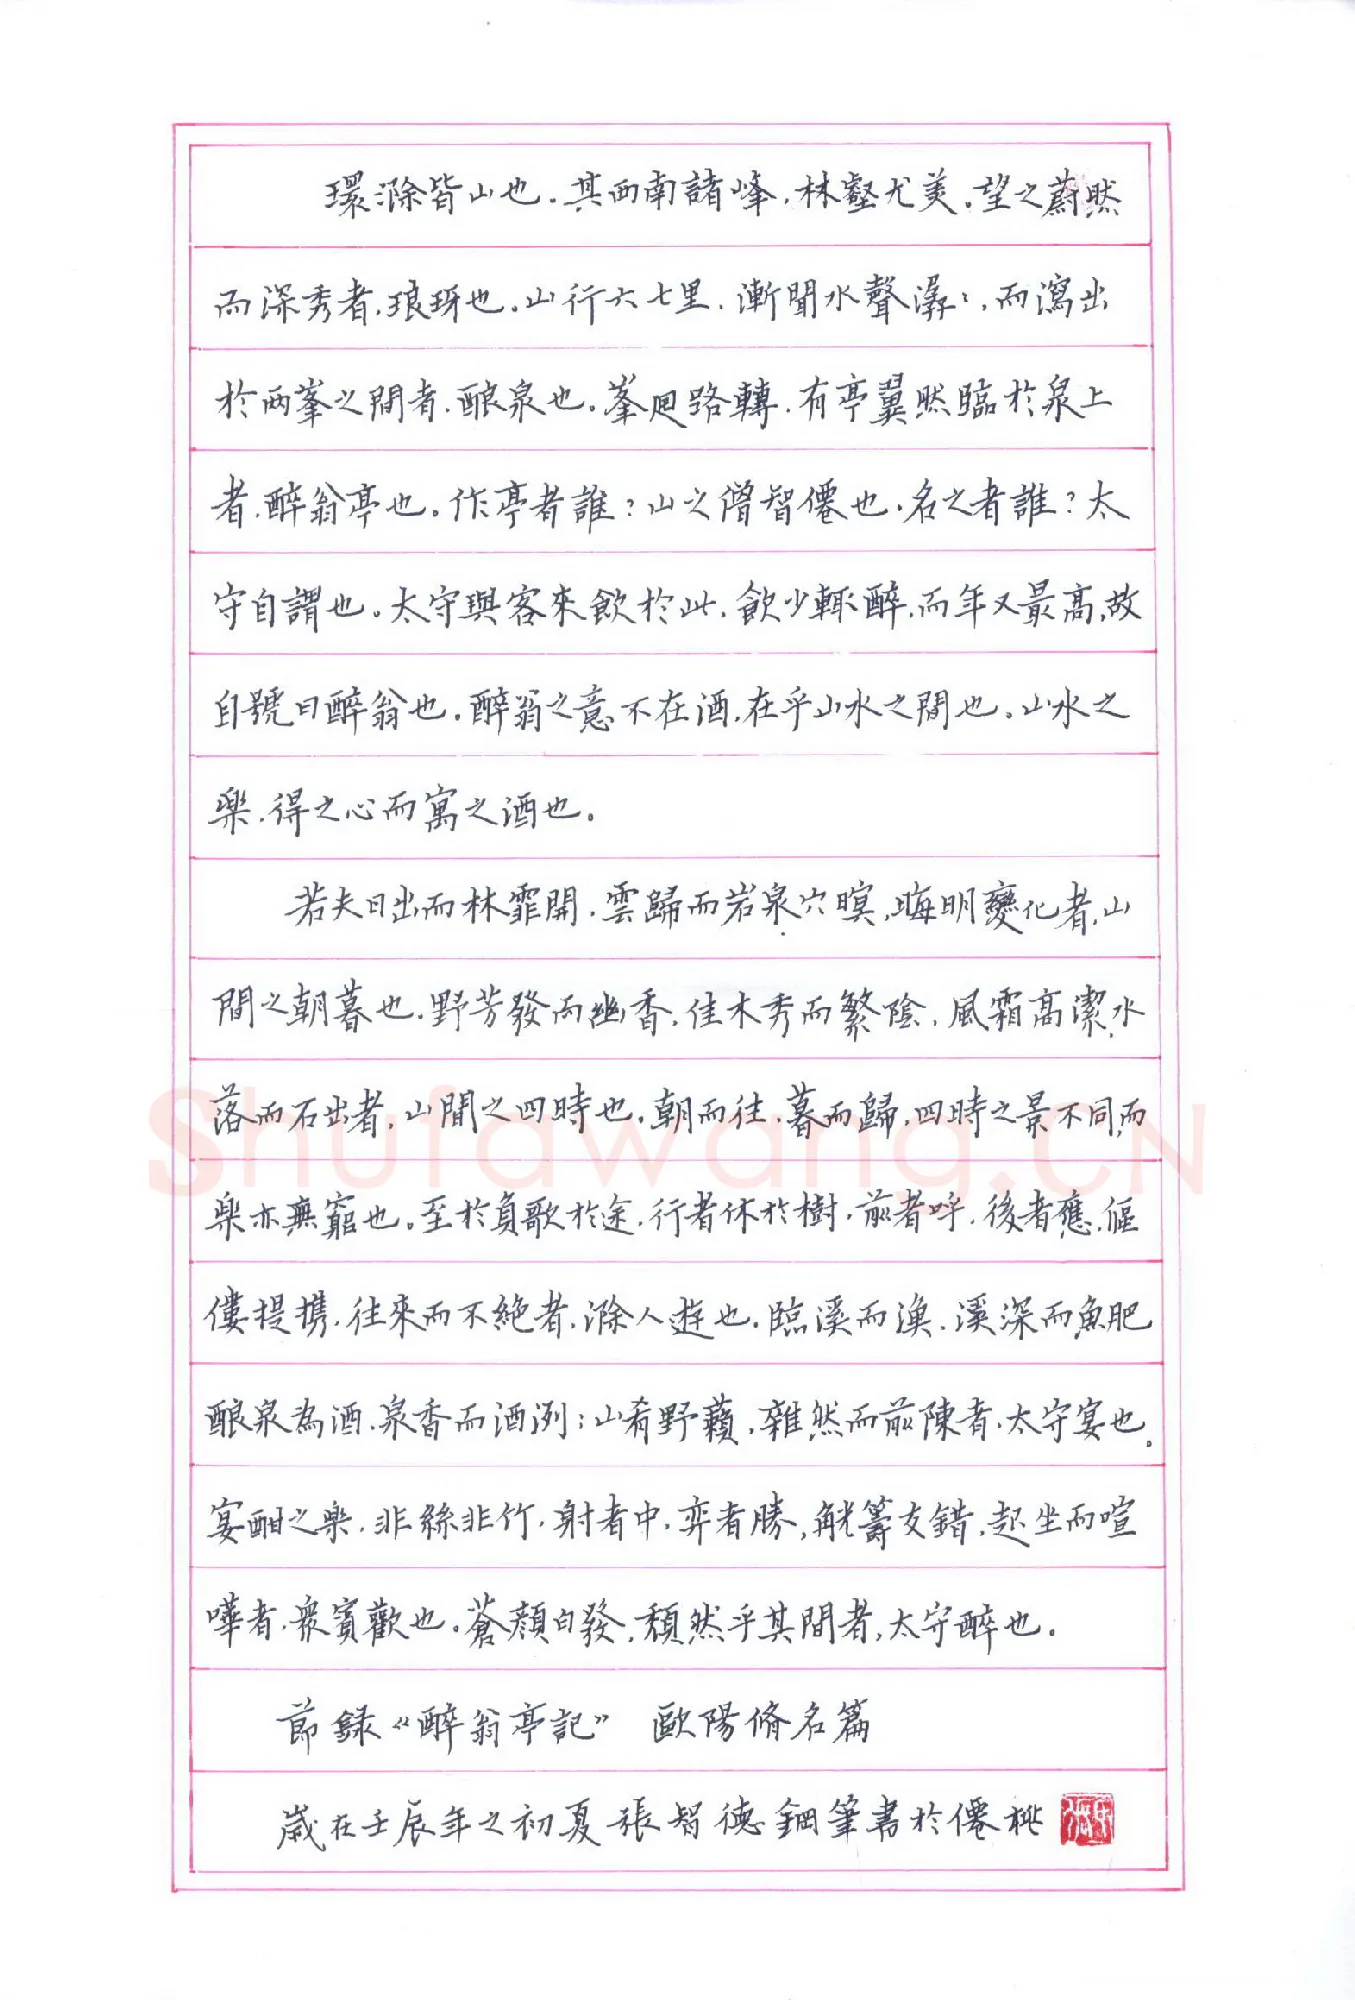 環滁皆山也。其西南諸峰，林壑尤美。望之蔚然
而深秀者，琅玡也。山行六七里，漸聞水聲潺々，而瀉出
於兩峯之間者，酿泉也。峯迴路轉，有亭翼然臨於泉上
者，醉翁亭也。作亭者誰？山之僧智僊也。名之者誰？太
守自謂也。太守與客來飲於此，飲少輒醉，而年又最高，故
自號曰醉翁也。醉翁之意不在酒，在乎山水之間也。山水之
樂，得之心而寓之酒也。
若夫日出而林霏開，雲歸而岩泉穴暝，晦明變化者，山
間之朝暮也。野芳發而幽香，佳木秀而繁陰，風霜高潔，水
落而石出者，山間之四時也。朝而往，暮而歸，四時之景不同，而
樂亦無窮也。至於負歌於途，行者休於樹，前者呼，後者應，傴
僂提携，往來而不絕者，滁人遊也。臨溪而漁，溪深而魚肥
酿泉為酒，泉香而酒洌；山肴野蔌，雜然而前陳者，太守宴也。
宴酣之樂，非絲非竹，射者中，弈者勝，觥籌交錯，起坐而喧
嘩者，衆賓歡也。蒼顏白發，頹然乎其間者，太守醉也。
節録《醉翁亭記》 歐陽脩名篇
歲在壬辰年之初夏張智德鋼筆書於僊桃
Shufawang.CN